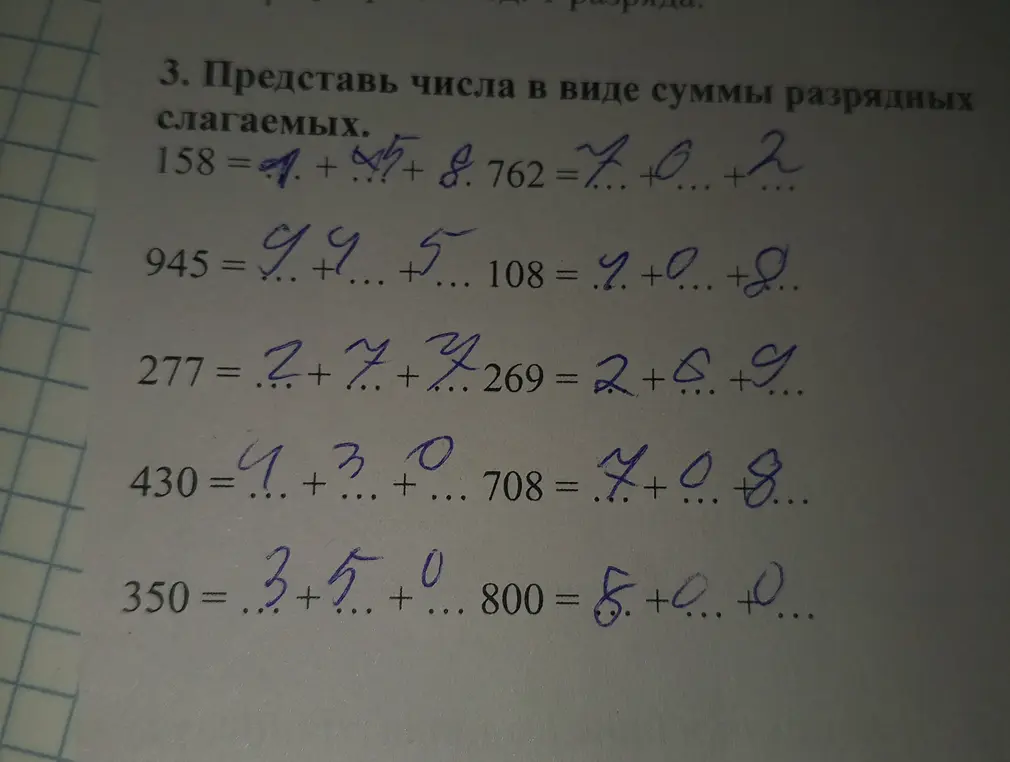 3. Представь числа в виде суммы разрядных
слагаемых.
158 = 1 + 5 + 8 762 = 7 + 6 + 2
945 = 9 + 4 + 5 108 = 1 + 0 + 8
277 = 2 + 7 + 7 269 = 2 + 6 + 9
430 = 4 + 3 + 0 708 = 7 + 0 + 8
350 = 3 + 5 + 0 800 = 8 + 0 + 0